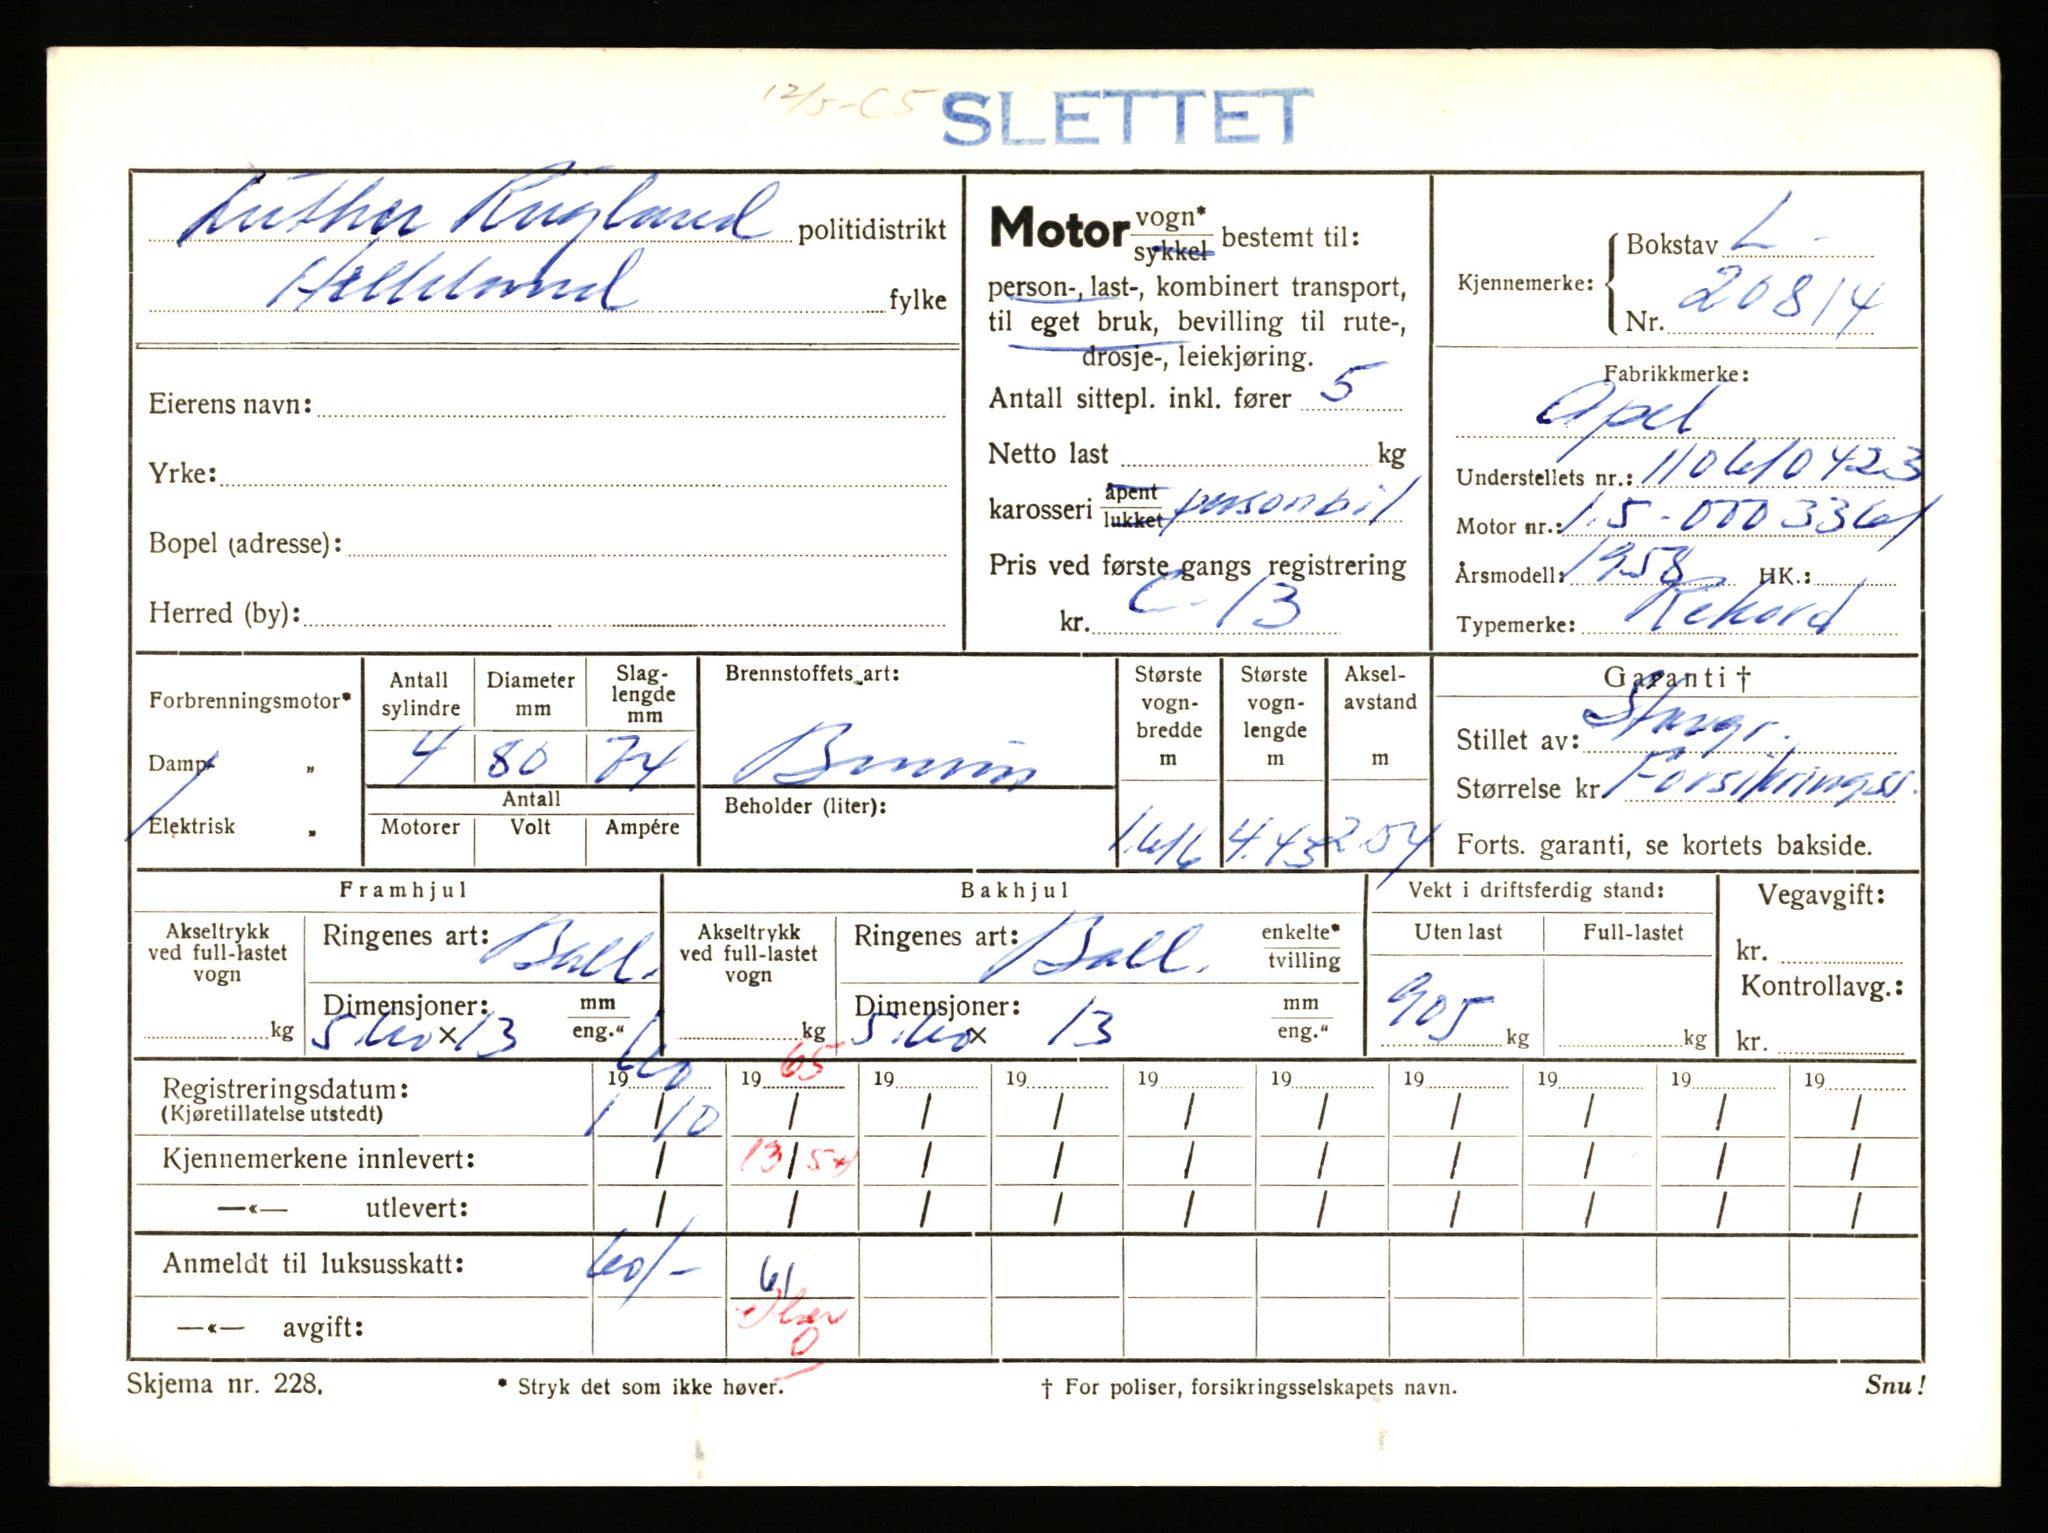 12/5-65 SLETTET
Luther Rugland politidistrikt
Helleland fylke
Eierens navn:
Yrke:
Bopel (adresse):
Herred (by):
Motor vogn* / sykkel bestemt til:
person-, last-, kombinert transport,
til eget bruk, bevilling til rute-,
drosje-, leiekjøring.
Antall sittepl. inkl. fører 5
Netto last kg
karosseri åpent / lukket personbil
Pris ved første gangs registrering
kr. C-13
Kjennemerke: Bokstav L-
Nr. 20814
Fabrikkmerke:
Opel
Understellets nr.: 110610423
Motor nr.: 1.5-0003361
Årsmodell: 1958 HK.:
Typemerke: Rekord
Forbrenningsmotor*
Damp- „
Elektrisk „
Antall sylindre Diameter mm Slaglengde mm
4 80 74
Antall
Motorer Volt Ampére
Brennstoffets art:
Bensin
Beholder (liter):
Største vognbredde m Største vognlengde m Akselavstand m
1.616 4.43 2.54
Garanti †
Stillet av: Stavgr.
Størrelse kr. Forsikringss.
Forts. garanti, se kortets bakside.
Framhjul
Akseltrykk ved full-lastet vogn kg
Ringenes art: Ball.
Dimensjoner: mm / eng."
5.60 × 13
Bakhjul
Akseltrykk ved full-lastet vogn kg
Ringenes art: Ball. enkelte* / tvilling
Dimensjoner: mm / eng."
5.60 × 13
Vekt i driftsferdig stand:
Uten last Full-lastet
905 kg kg
Vegavgift:
kr.
Kontrollavg.:
kr.
Registreringsdatum: 1960 1965 19 19 19 19 19 19 19 19
(Kjøretillatelse utstedt) 1/10 / / / / / / / / /
Kjennemerkene innlevert: / 13/5 / / / / / / / /
—«— utlevert: / / / / / / / / / /
Anmeldt til luksusskatt: 60/- 61
—«— avgift: 0
Skjema nr. 228. * Stryk det som ikke høver. † For poliser, forsikringsselskapets navn. Snu!